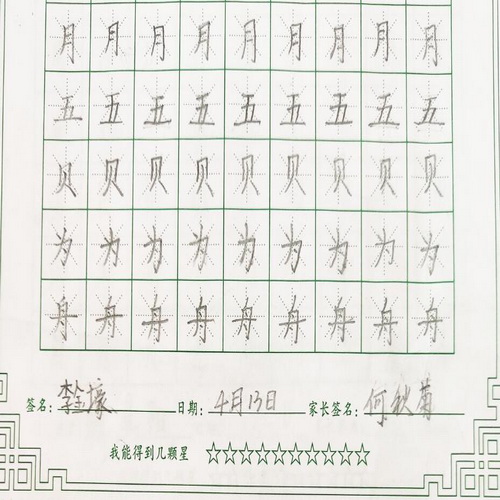 月月月月月月月月月
五五五五五五五五五
贝贝贝贝贝贝贝贝贝
为为为为为为为为为
舟舟舟舟舟舟舟舟舟
签名：李 日期：4月13日 家长签名：何秋菊
我能得到几颗星 ☆☆☆☆☆☆☆☆☆☆